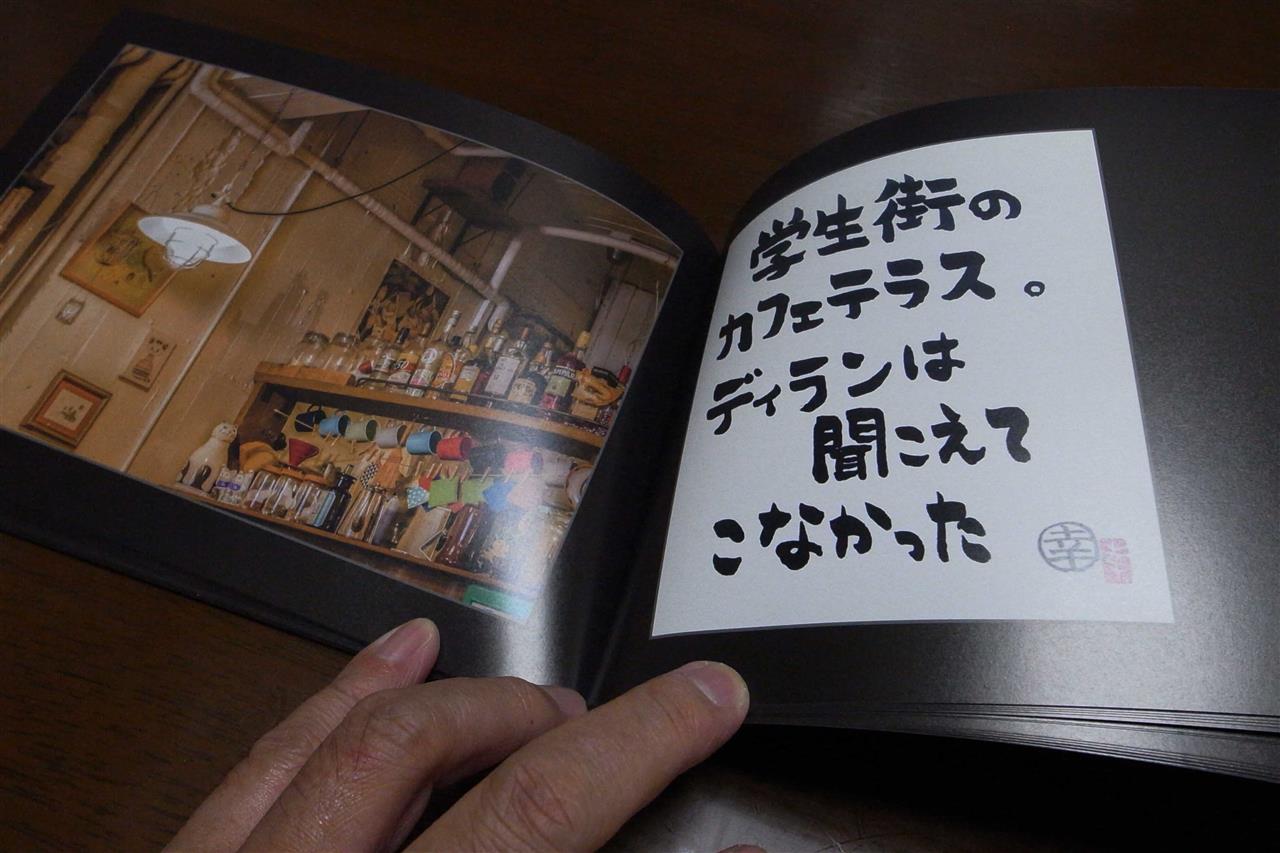 学生街の
カフェテラス。
ディランは
聞こえて
こなかった
幸